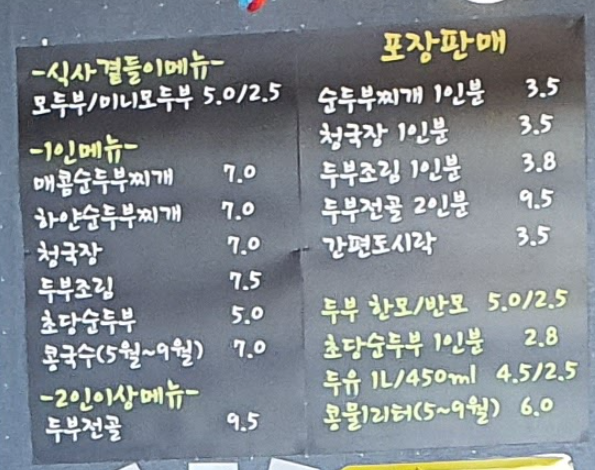 -식사곁들이메뉴-
모두부/미니모두부 5.0/2.5
-1인메뉴-
매콤순두부찌개 7.0
하얀순두부찌개 7.0
청국장 7.0
두부조림 7.5
초당순두부 5.0
콩국수(5월~9월) 7.0
-2인이상메뉴-
두부전골 9.5
포장판매
순두부찌개 1인분 3.5
청국장 1인분 3.5
두부조림 1인분 3.8
두부전골 2인분 9.5
간편도시락 3.5
두부 한모/반모 5.0/2.5
초당순두부 1인분 2.8
두유 1L/450ml 4.5/2.5
콩물1리터(5~9월) 6.0